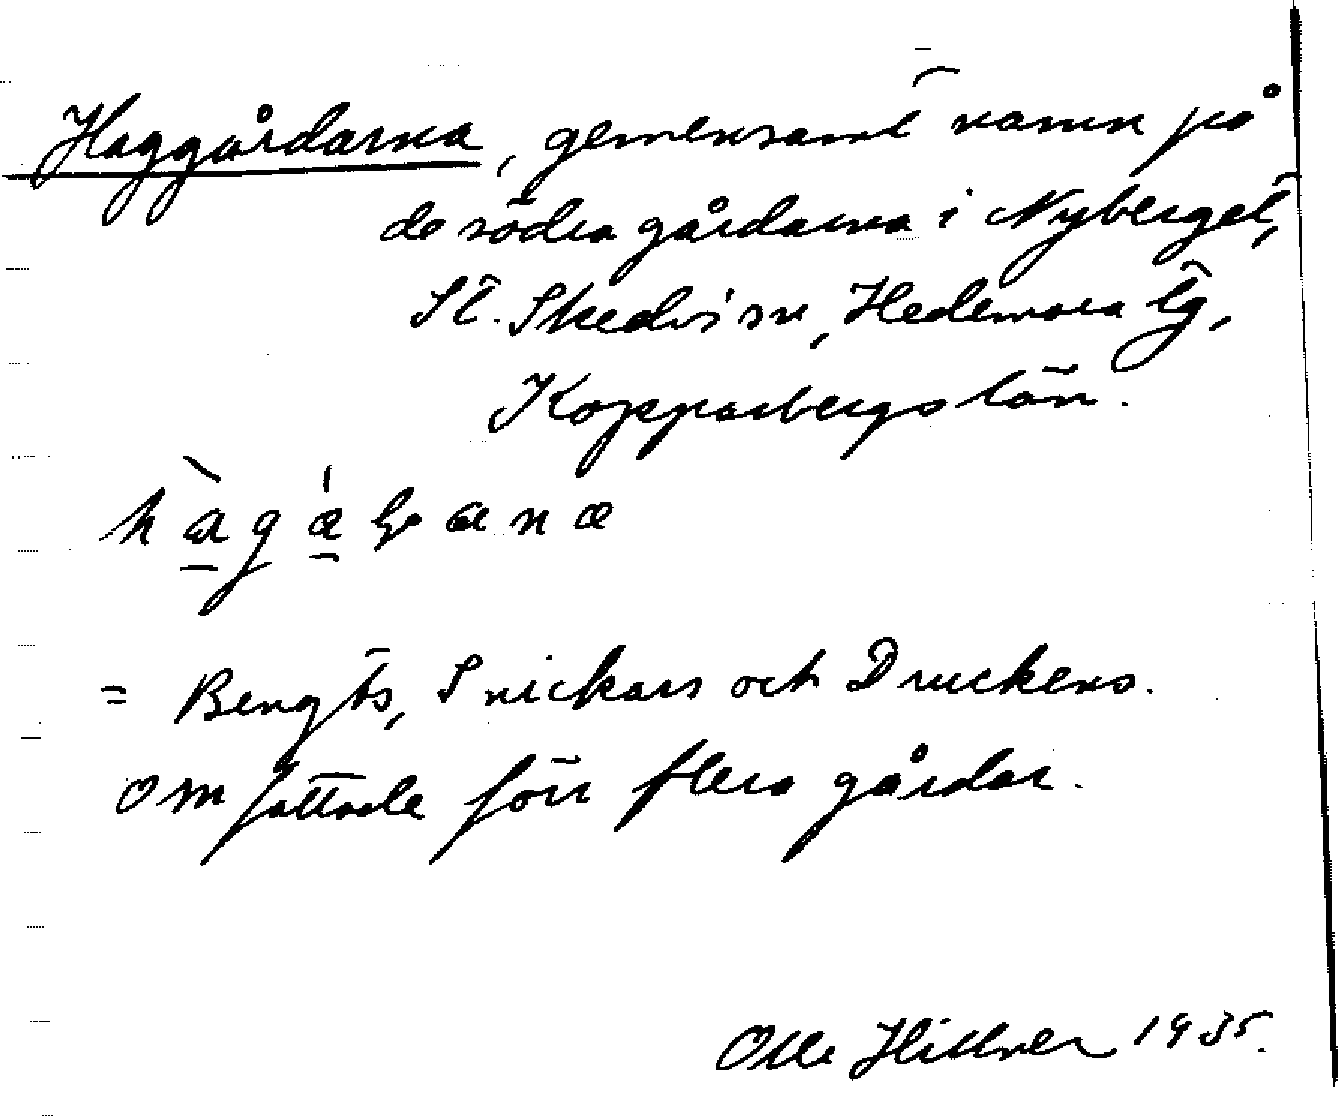 Haggårdarna, gemensamt namn på
de södra gårdarna i Nyberget,
St. Skedvi sn, Hedemora tg,
Kopparbergs län.
= Bengts, Snickars och Druckens.
Omfattade förr flera gårdar.
Olle Hillner 1935.